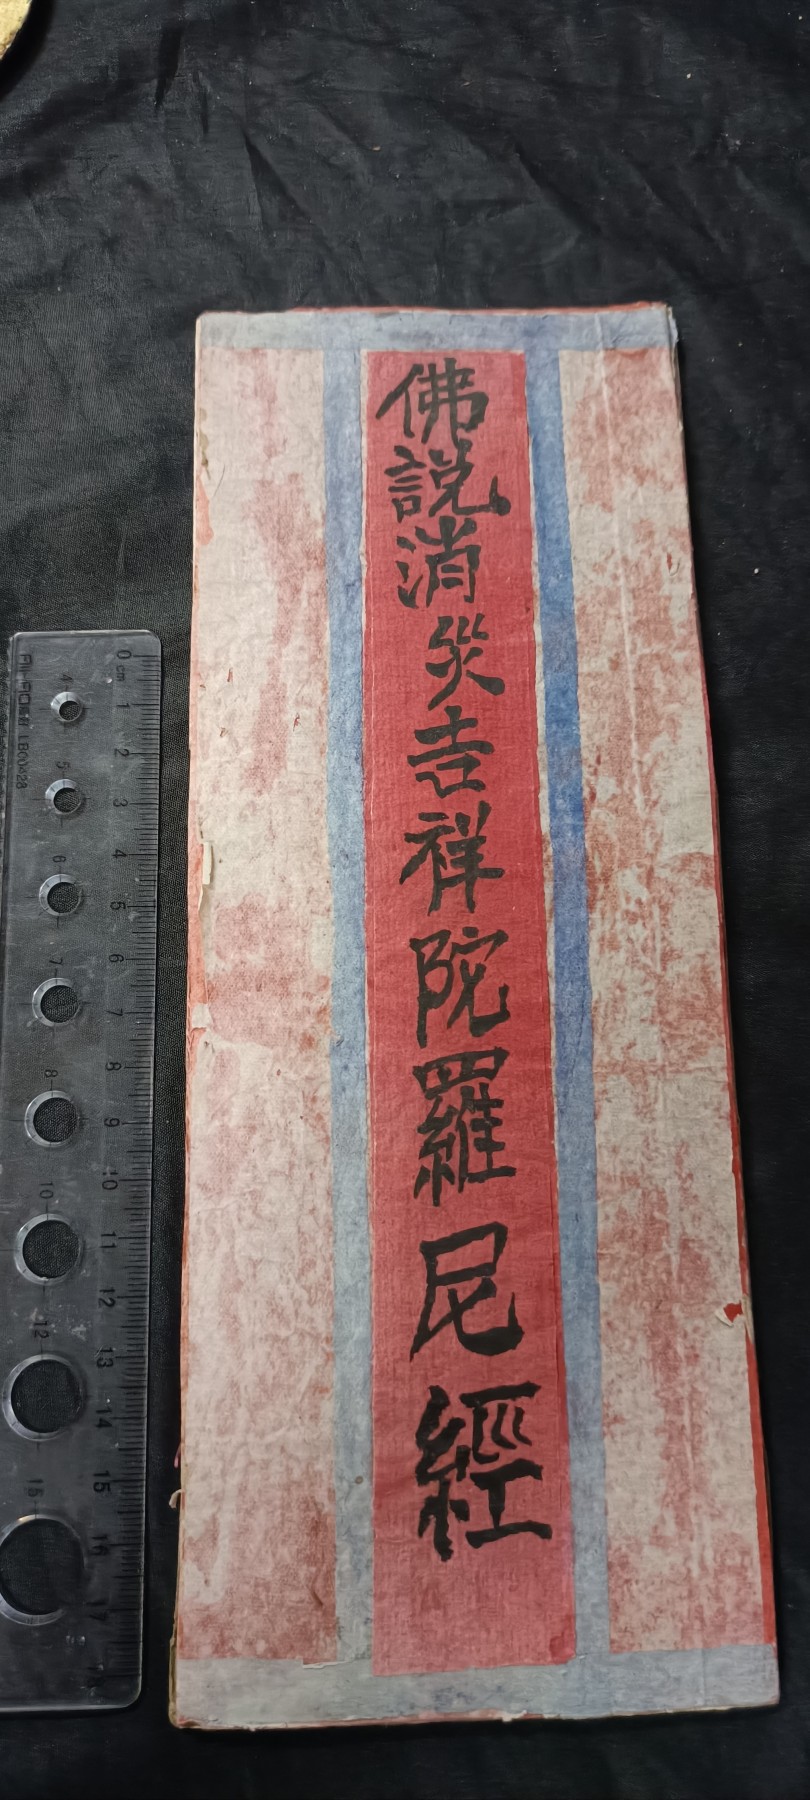 佛説消災吉祥陀羅尼經
0 cm 1 2 3 4 5 6 7 8 9 10 11 12 13 14 15 16 17
4 5 6 7 8 10 12 15